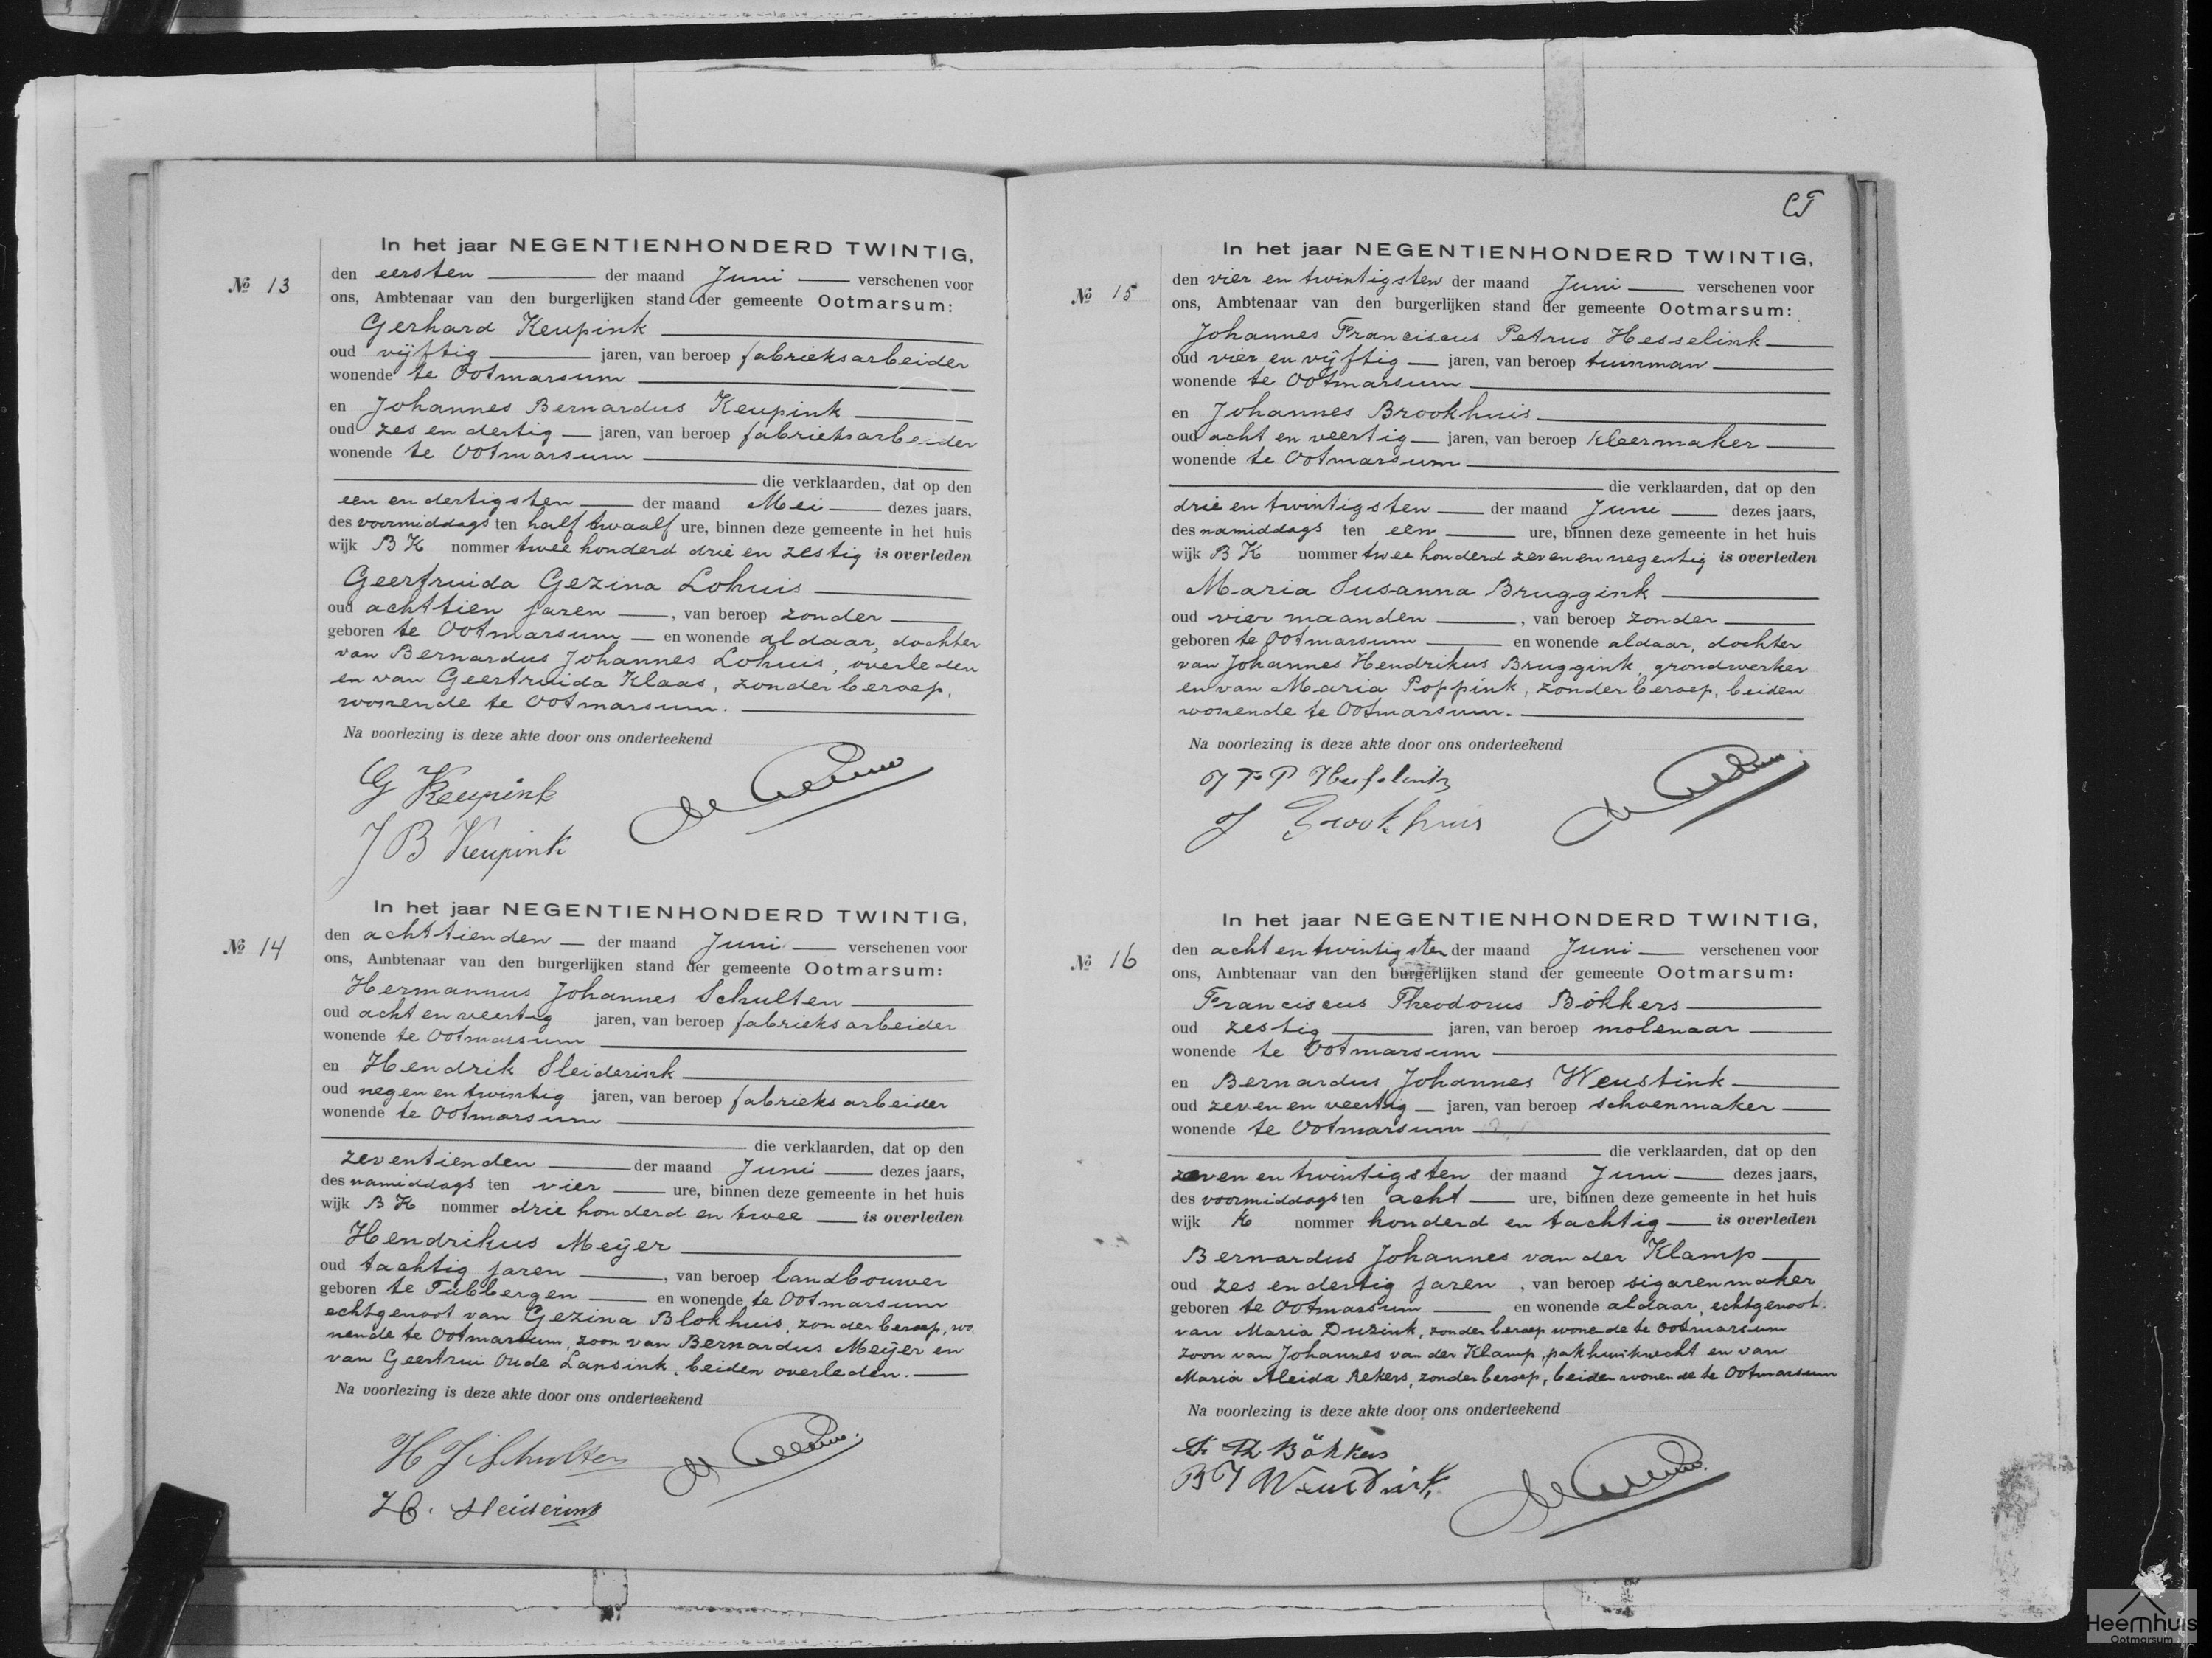 In het jaar NEGENTIENHONDERD TWINTIG,
№ 13
den eersten der maand Juni verschenen voor
ons, Ambtenaar van den burgerlijken stand der gemeente Ootmarsum:
Gerhard Keupink
oud vijftig jaren, van beroep fabrieksarbeider
wonende te Ootmarsum
en Johannes Bernardus Keupink
oud zes en dertig jaren, van beroep fabrieksarbeider
wonende te Ootmarsum
die verklaarden, dat op den
een en dertigsten der maand Mei dezes jaars,
des voormiddags ten half twaalf ure, binnen deze gemeente in het huis
wijk B K nommer twee honderd drie en zestig is overleden
Geertruida Gezina Lohuis
oud achttien jaren, van beroep zonder
geboren te Ootmarsum en wonende aldaar, dochter
van Bernardus Johannes Lohuis, overleden
en van Geertruida Klaas, zonder beroep,
wonende te Ootmarsum.
Na voorlezing is deze akte door ons onderteekend
G Keupink
J B Keupink
In het jaar NEGENTIENHONDERD TWINTIG,
№ 14
den achttienden der maand Juni verschenen voor
ons, Ambtenaar van den burgerlijken stand der gemeente Ootmarsum:
Hermannus Johannes Schulten
oud acht en veertig jaren, van beroep fabrieksarbeider
wonende te Ootmarsum
en Hendrik Sleiderink
oud negen en twintig jaren, van beroep fabrieksarbeider
wonende te Ootmarsum
die verklaarden, dat op den
zeventienden der maand Juni dezes jaars,
des namiddags ten vier ure, binnen deze gemeente in het huis
wijk B K nommer drie honderd en twee is overleden
Hendrikus Meijer
oud tachtig jaren, van beroep landbouwer
geboren te Tubbergen en wonende te Ootmarsum
echtgenoot van Gezina Blokhuis, zonder beroep, wo
nende te Ootmarsum, zoon van Bernardus Meijer en
van Geertrui Oude Lansink, beiden overleden.
Na voorlezing is deze akte door ons onderteekend
H J Schulten
H. Sleiderink
CT
In het jaar NEGENTIENHONDERD TWINTIG,
№ 15
den vier en twintigsten der maand Juni verschenen voor
ons, Ambtenaar van den burgerlijken stand der gemeente Ootmarsum:
Johannes Franciscus Petrus Hesselink
oud vier en vijftig jaren, van beroep tuinman
wonende te Ootmarsum
en Johannes Brookhuis
oud acht en veertig jaren, van beroep kleermaker
wonende te Ootmarsum
die verklaarden, dat op den
drie en twintigsten der maand Juni dezes jaars,
des namiddags ten een ure, binnen deze gemeente in het huis
wijk B K nommer twee honderd zeven en negentig is overleden
Maria Susanna Bruggink
oud vier maanden, van beroep zonder
geboren te Ootmarsum en wonende aldaar, dochter
van Johannes Hendrikus Bruggink, grondwerker
en van Maria Poppink, zonder beroep, beiden
wonende te Ootmarsum.
Na voorlezing is deze akte door ons onderteekend
J F P Hesselink
J Brookhuis
In het jaar NEGENTIENHONDERD TWINTIG,
№ 16
den acht en twintigsten der maand Juni verschenen voor
ons, Ambtenaar van den burgerlijken stand der gemeente Ootmarsum:
Franciscus Theodorus Bökkers
oud zestig jaren, van beroep molenaar
wonende te Ootmarsum
en Bernardus Johannes Weustink
oud zeven en veertig jaren, van beroep schoenmaker
wonende te Ootmarsum
die verklaarden, dat op den
zeven en twintigsten der maand Juni dezes jaars,
des voormiddags ten acht ure, binnen deze gemeente in het huis
wijk K nommer honderd en tachtig is overleden
Bernardus Johannes van der Klamp
oud zes en dertig jaren, van beroep sigarenmaker
geboren te Ootmarsum en wonende aldaar, echtgenoot
van Maria Duzink, zonder beroep wonende te Ootmarsum
zoon van Johannes van der Klamp, pakhuisknecht en van
Maria Aleida Rekers, zonder beroep, beiden wonende te Ootmarsum
Na voorlezing is deze akte door ons onderteekend
F. Th Bökkers
B J Weustink
Heemhuis
Ootmarsum